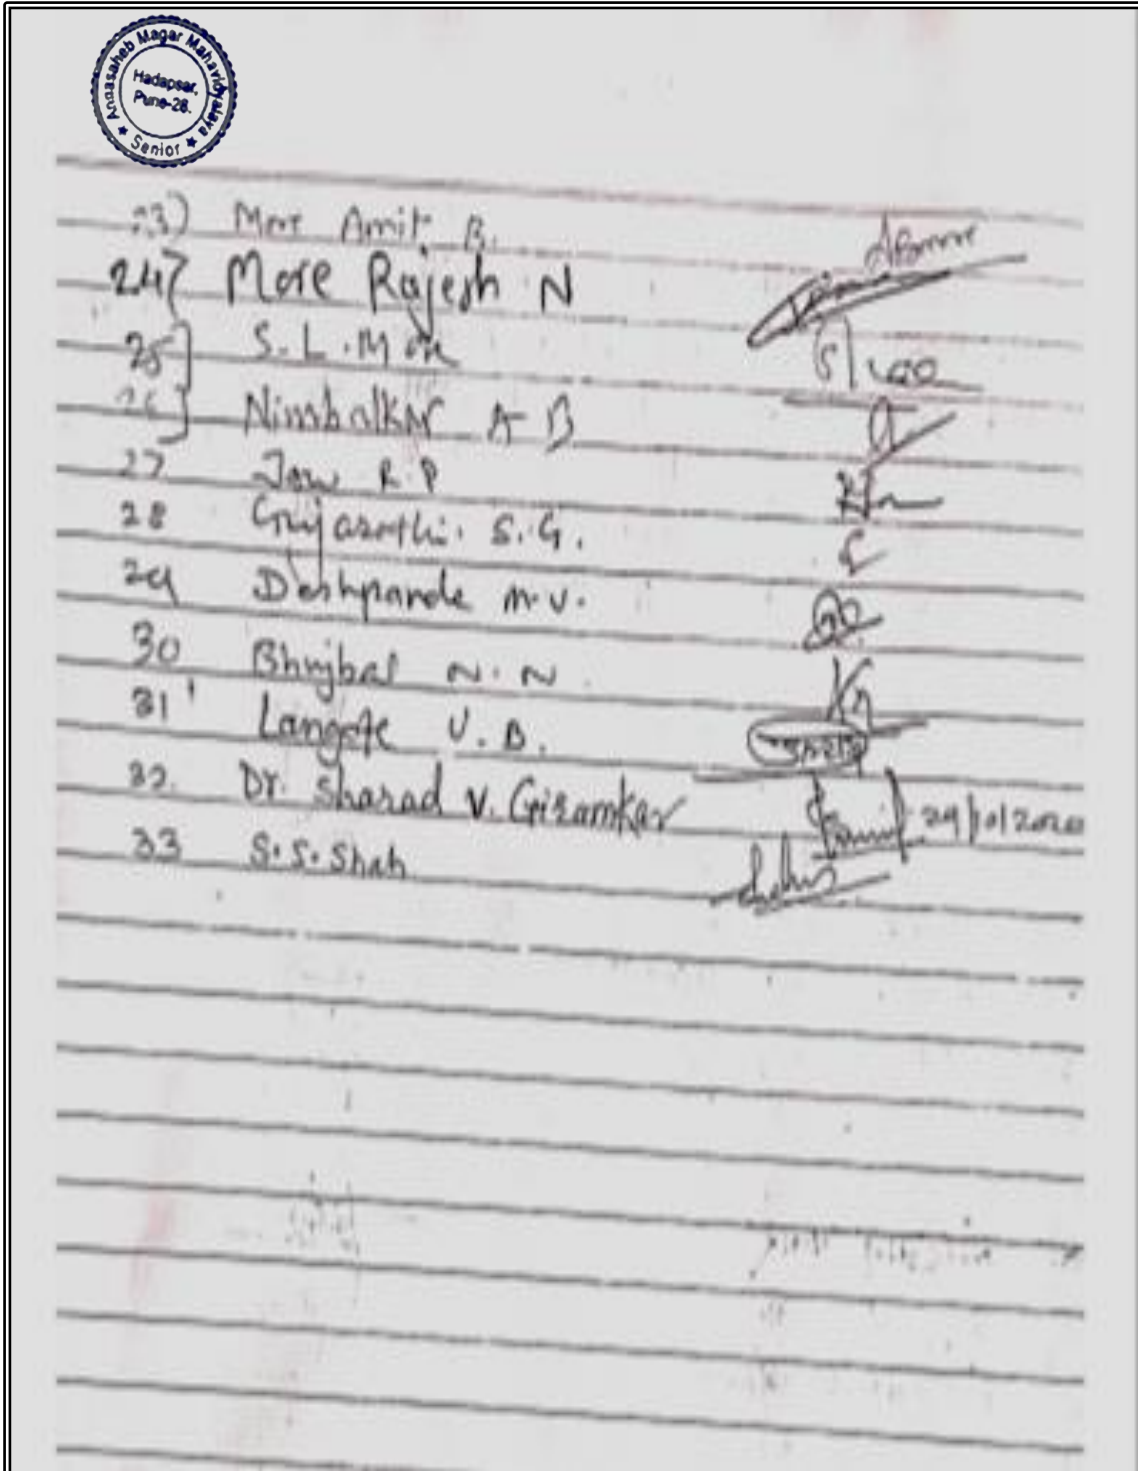 Annasaheb Magar Mahavidyalaya
Hadapsar,
Pune-28.
★ Senior ★
23) More Amit B.
24] More Rajesh N
25] S.L. More
26] Nimbalkar A B
27 R.P
28 Gujarathi. S.G.
29 Deshpande M.V.
30 Bhujbal N.N.
31 Langote V.B.
32. Dr. Sharad V. Giramkar 29/10/2020
33 S.S. Shah